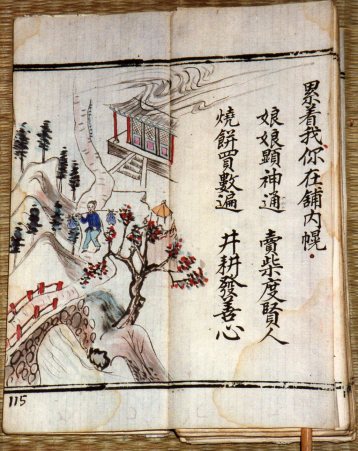 累着我你在舖内幌.
娘娘顕神通 賣柴度賢人
燒餅買數遍 井耕發善心
115